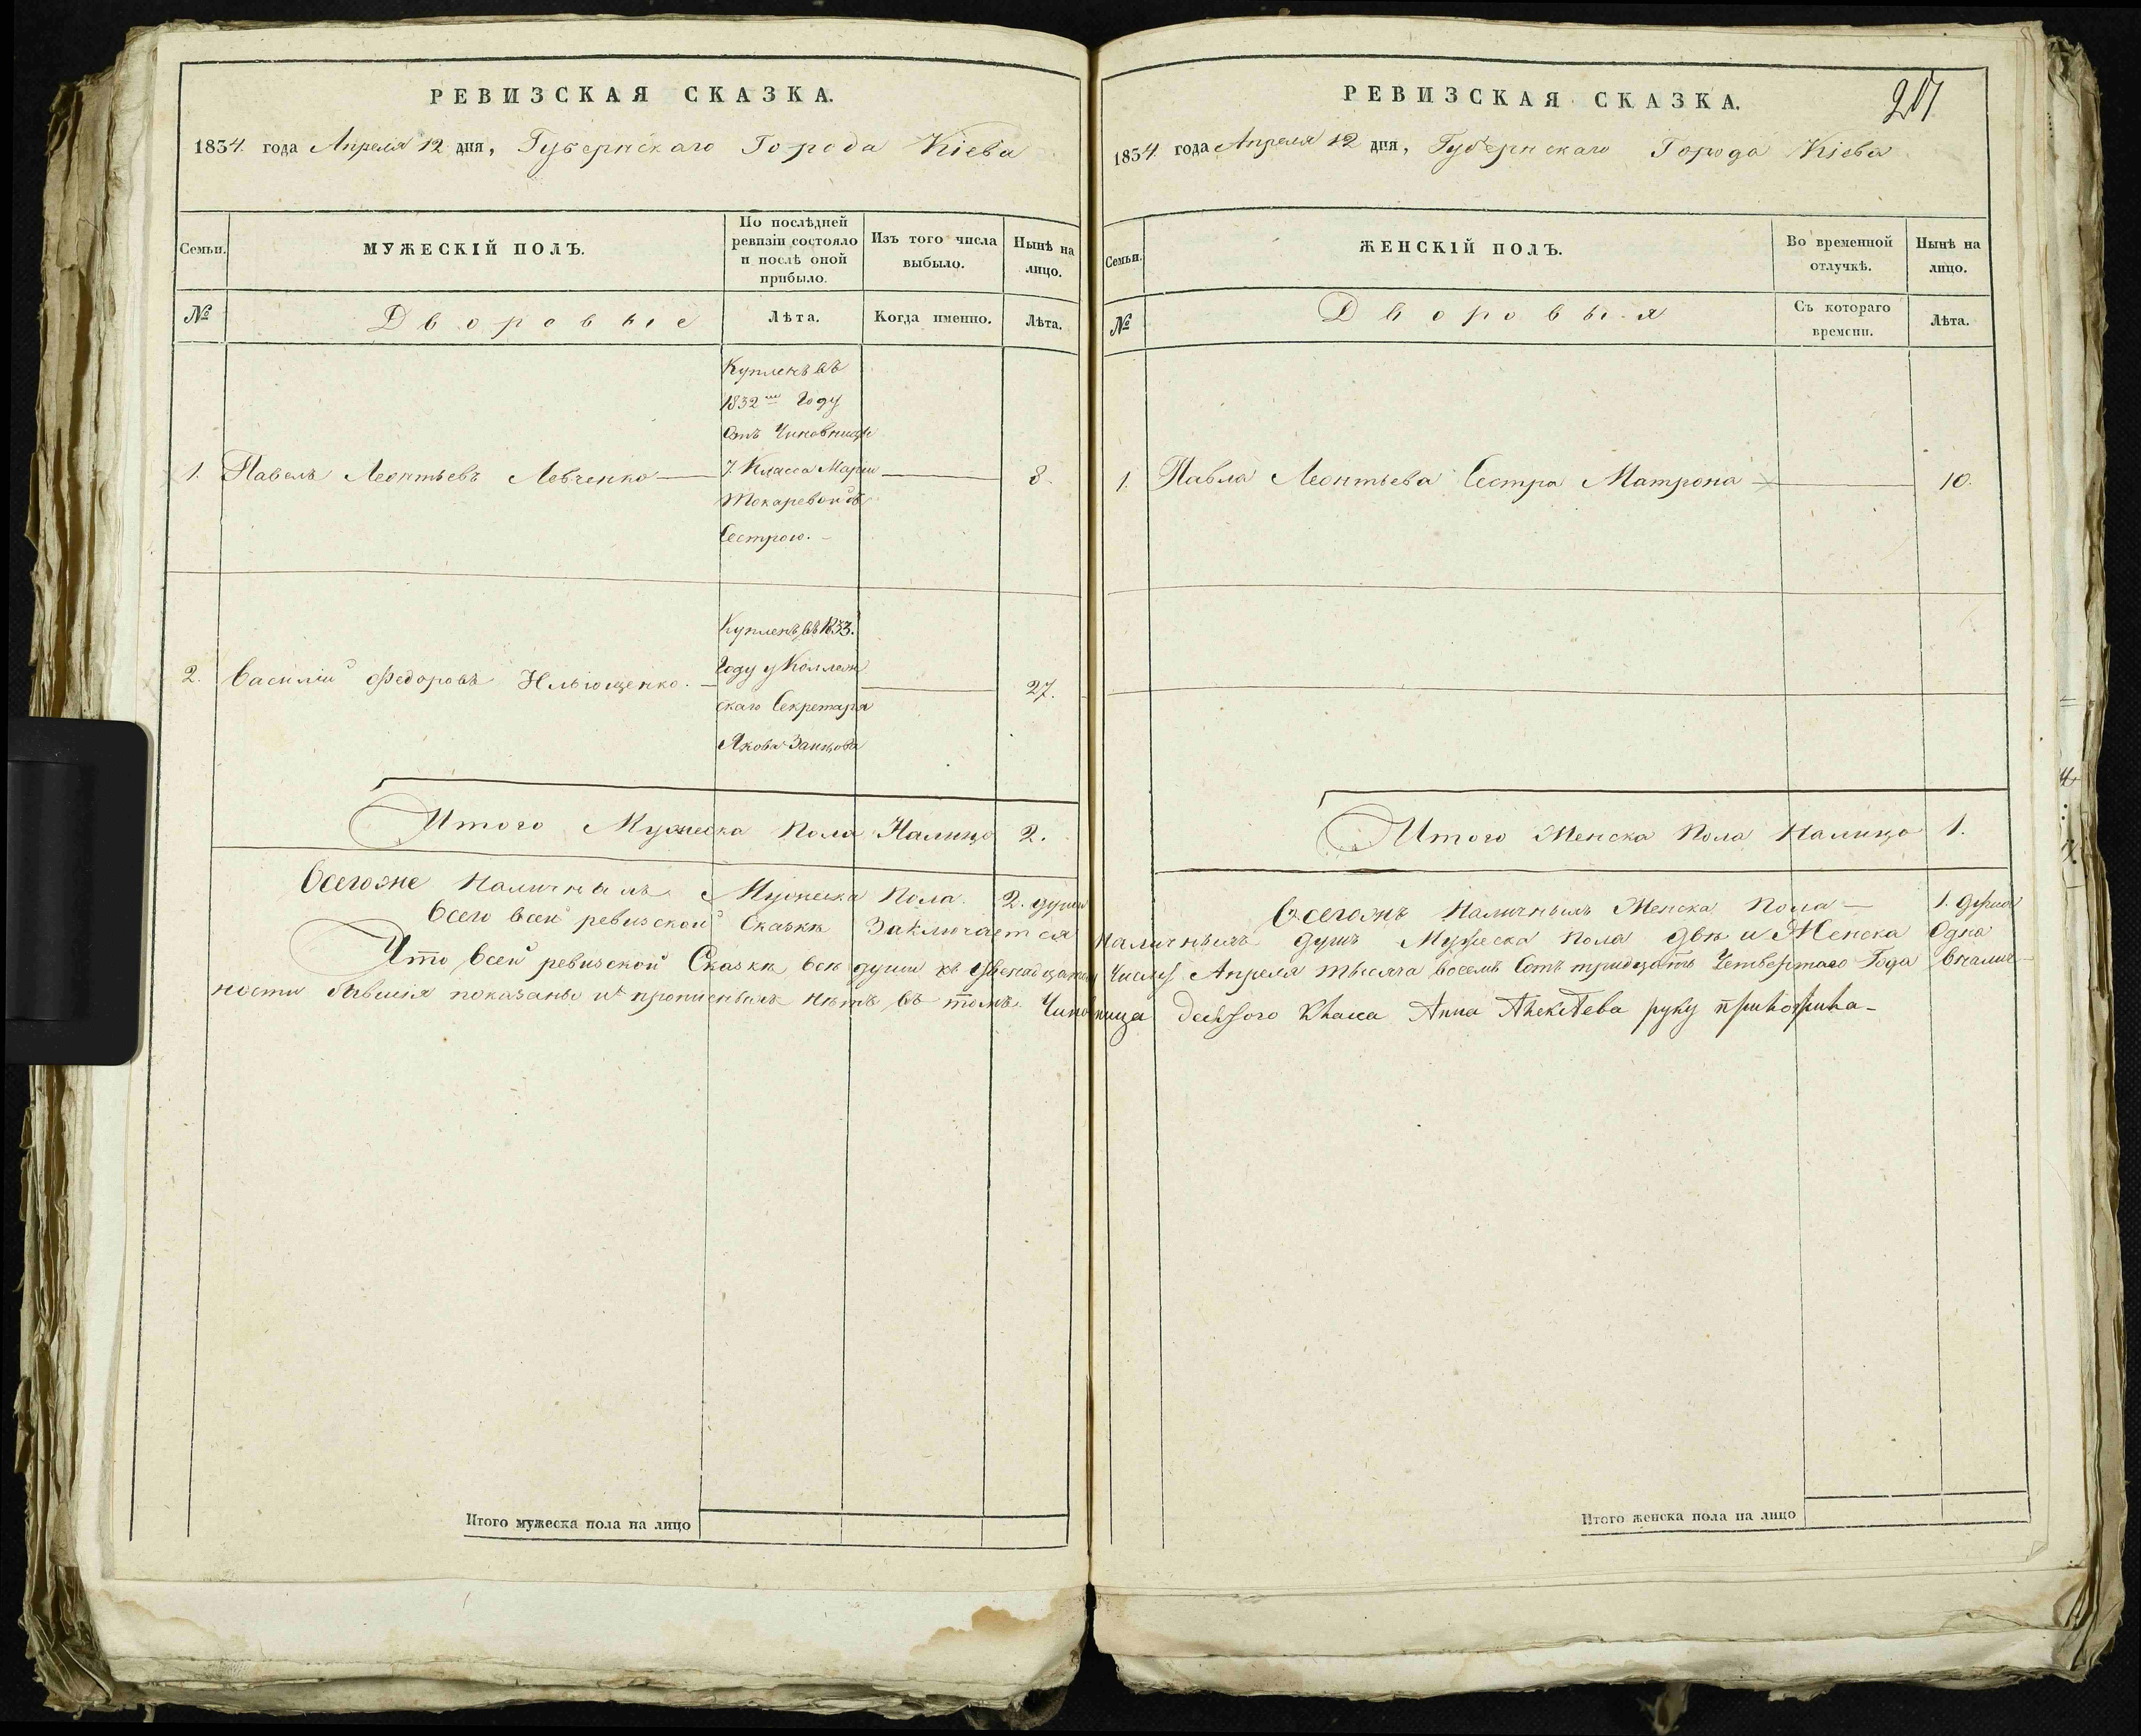 РЕВИЗСКАЯ СКАЗКА.
1834. года Апреля 12 дня, Губернскаго Города Кіева
Семьи.
МУЖЕСКІЙ ПОЛЪ.
По послѣдней
ревизіи состояло
и послѣ оной
прибыло.
Изъ того числа
выбыло.
Нынѣ на
лицо.
№
Дворовые
Лѣта.
Когда именно.
Лѣта.
Купленъ въ
1832мъ Году
Отъ Чиновницы
7. Класса Маріи
Токаревой съ
Сестрою.
1. Павелъ Леонтьевъ Левченко
8.
Купленъ въ 1833.
Году у Коллеж
скаго Секретаря
Якова
2. Василій Федоровъ Ильющенко.
27.
Итого Мужеска Пола Налицо 2.
Всегоже Наличныхъ Мужеска Пола. 2. души
РЕВИЗСКАЯ СКАЗКА.
1834. года Апреля 12 дня, Губернскаго Города Кіева
Семьи.
ЖЕНСКІЙ ПОЛЪ.
Во временной
отлучкѣ.
Нынѣ на
лицо.
№
Дворовыя
Съ котораго
времени.
Лѣта.
1. Павла Леонтьева Сестра Матрона 10.
Итого Женска Пола Налицо 1.
Всегожъ Наличныхъ Женска Пола 1. душа
Всего всей ревизской Сказкѣ Заключается наличныхъ душъ Мужеска пола двѣ и Женска Одна
Что всей ревизской Сказкѣ всѣ души къ двенадцатому Числу Апреля тысяча восемъ Сотъ тридцать Четвертаго Года вналич
ности бывшія показаны и прописныхъ нѣтъ въ томъ Чиновница Класса Анна руку приложила
Итого мужеска пола на лицо
Итого женска пола на лицо